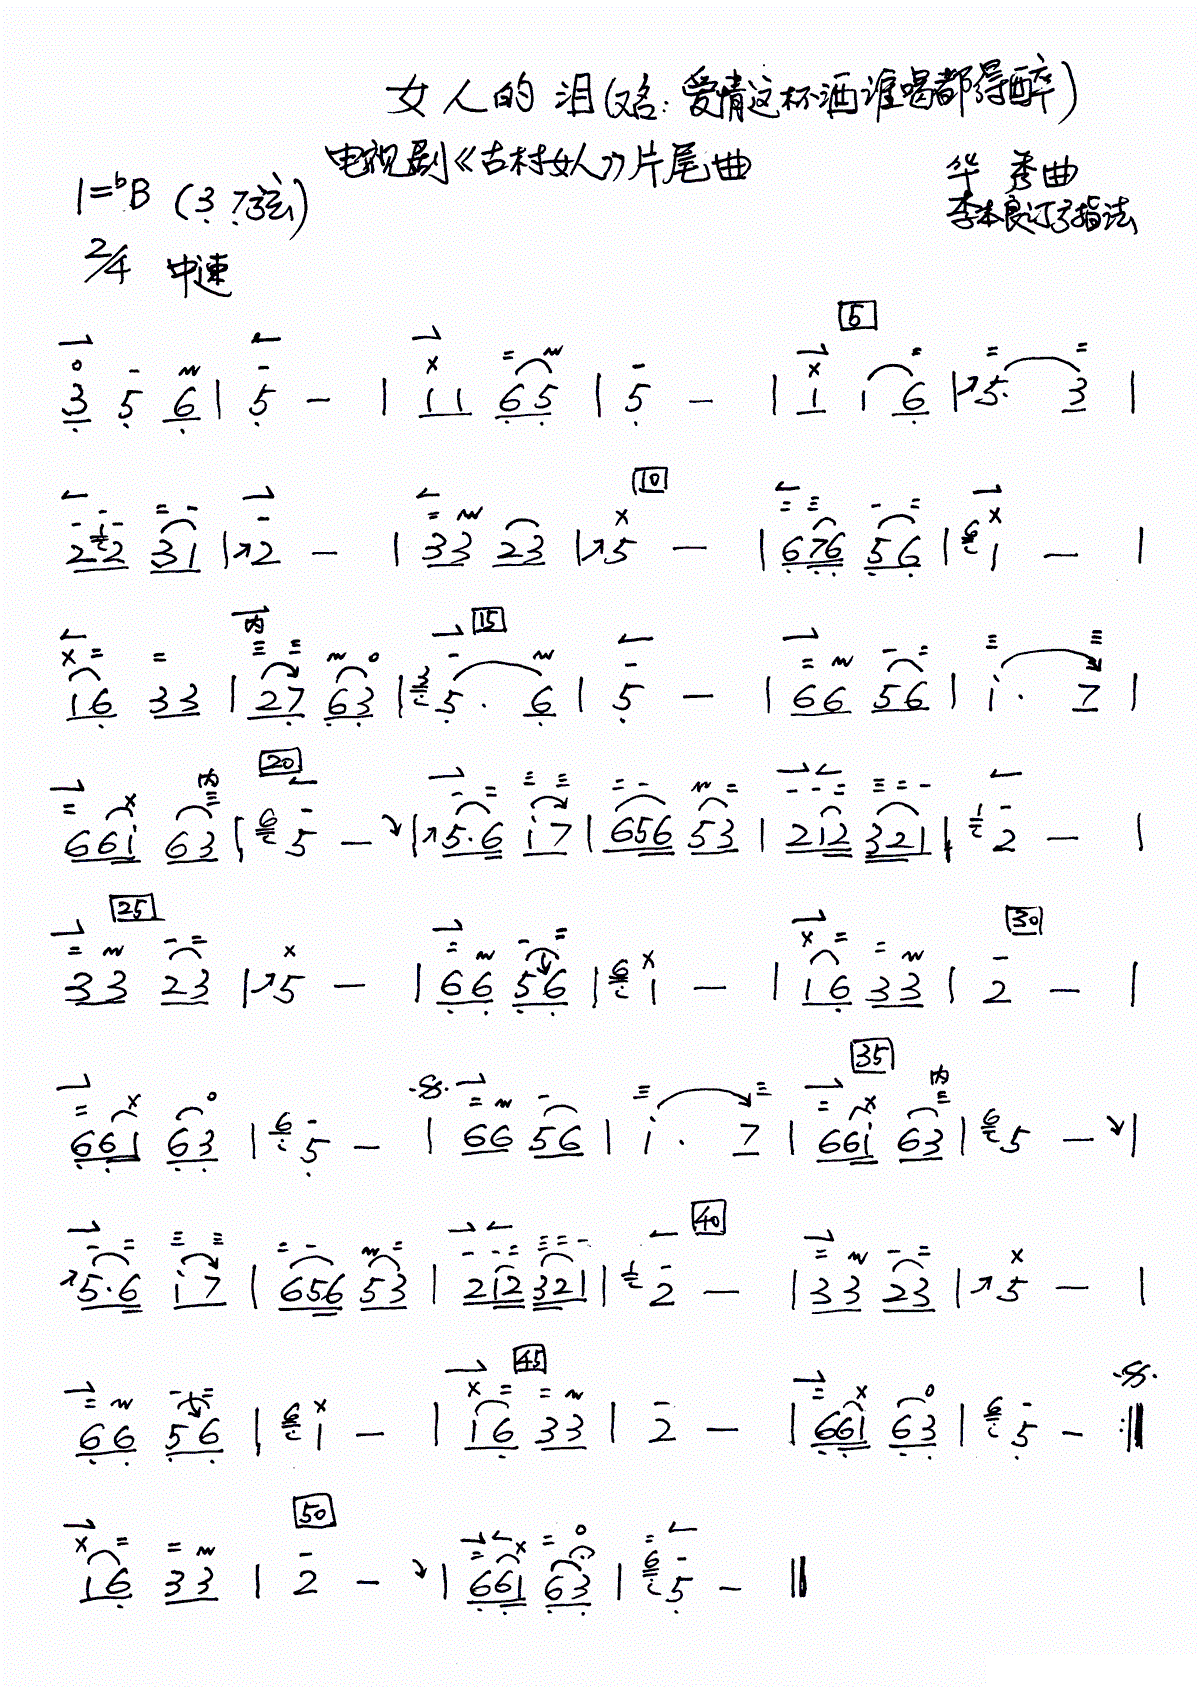 女人的泪(又名:爱情这杯酒谁喝都得醉)
电视剧《古村女人》片尾曲
华 秀曲
1=bB (3 7弦)
李本良订弓指法
2/4 中速
5
3 5 6 | 5 - | 1 1 6 5 | 5 - | 1 1 6 | 5. 3 |
10
2 2 3 1 | 2 - | 3 3 2 3 | 5 - | 6 7 6 5 6 | 1 - |
内 15
1 6 3 3 | 2 7 6 3 | 5 . 6 | 5 - | 6 6 5 6 | i . 7 |
内 20
6 6 i 6 3 | 5 - | 5. 6 i 7 | 6 5 6 5 3 | 2 1 2 3 2 1 | 2 - |
25 30
3 3 2 3 | 5 - | 6 6 5 6 | 1 - | 1 6 3 3 | 2 - |
35 内
6 6 1 6 3 | 5 - | 6 6 5 6 | i . 7 | 6 6 i 6 3 | 5 - |
40
5. 6 i 7 | 6 5 6 5 3 | 2 1 2 3 2 1 | 2 - | 3 3 2 3 | 5 - |
45
6 6 5 6 | 1 - | 1 6 3 3 | 2 - | 6 6 1 6 3 | 5 - :||
50
1 6 3 3 | 2 - | 6 6 1 6 3 | 5 - ||